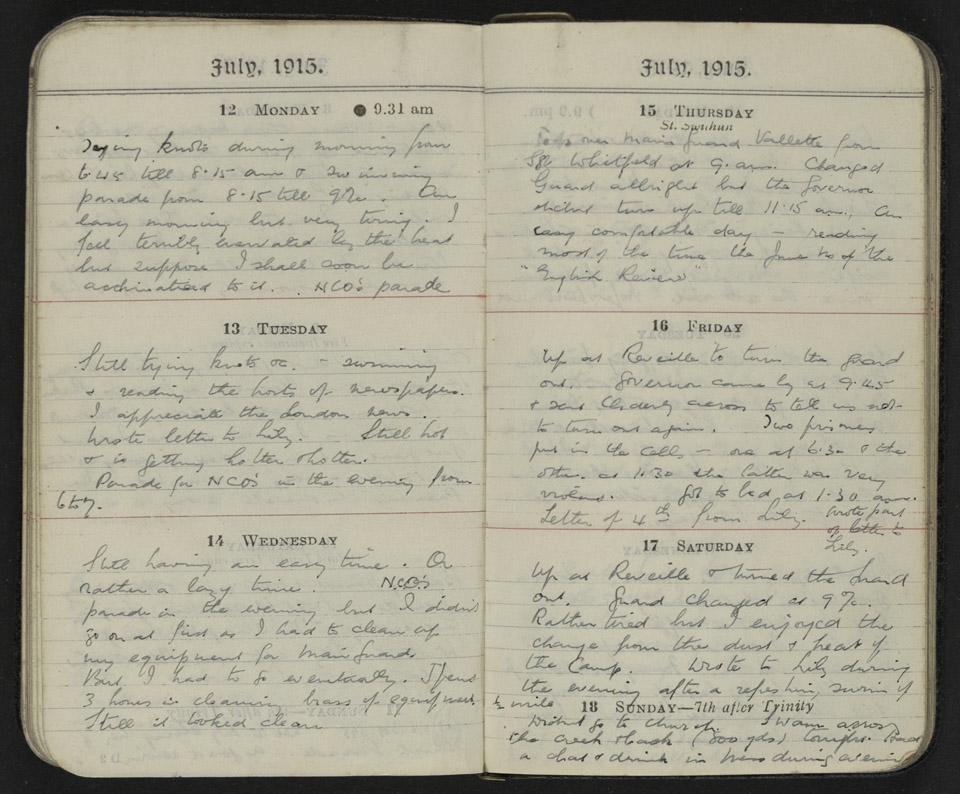 July, 1915.
12 MONDAY ● 9.31 am
Tying knots during morning from
6.45 till 8.15 am & swimming
parade from 8.15 till 9 A.M. An
easy morning but very tiring. I
feel terribly enervated by the heat
but suppose I shall soon be
acclimatised to it. NCO's parade
13 TUESDAY
Still tying knots &c. - swimming
& reading the hosts of newspapers.
I appreciate the London news.
Wrote letter to Lily. - Still hot
& is getting hotter & hotter.
Parade for NCO's in the evening from
6 to 7.
14 WEDNESDAY
Still having an easy time. Or
rather a lazy time. NCO's
parade in the evening but I didn't
go on at first as I had to clean up
my equipment for Main Guard.
But I had to go eventually. Spent
3 hours in cleaning brass of equipment.
Still it looked clean
July, 1915.
15 THURSDAY
St. Swithun
over Main Guard Vallette from
Sgt Whitfield at 9. am. Changed
Guard allright but the Governor
didnt turn up till 11.15 am. An
easy comfortable day - reading
most of the time the June No of the
"English Review"
16 FRIDAY
Up at Reveille to turn the guard
out. Governor came by at 9.45
& sent Orderly across to tell us not
to turn out again. Two prisoners
put in the cells - one at 6.30 & the
other at 11.30 the latter was very
violent. Got to bed at 1.30 am.
Letter of 4th from Lily. Wrote part
of letter to
Lily.
17 SATURDAY
Up at Reveille & turned the Guard
out. Guard changed at 9
Rather tired but I enjoyed the
change from the dust & heat of
the Camp. Wrote to Lily during
the evening after a refreshing swim of
½ mile
18 SUNDAY—7th after Trinity
Didnt go to church. Swam across
the creek & back (800 yds) tonight. Had
a chat & drink in Mess during evening